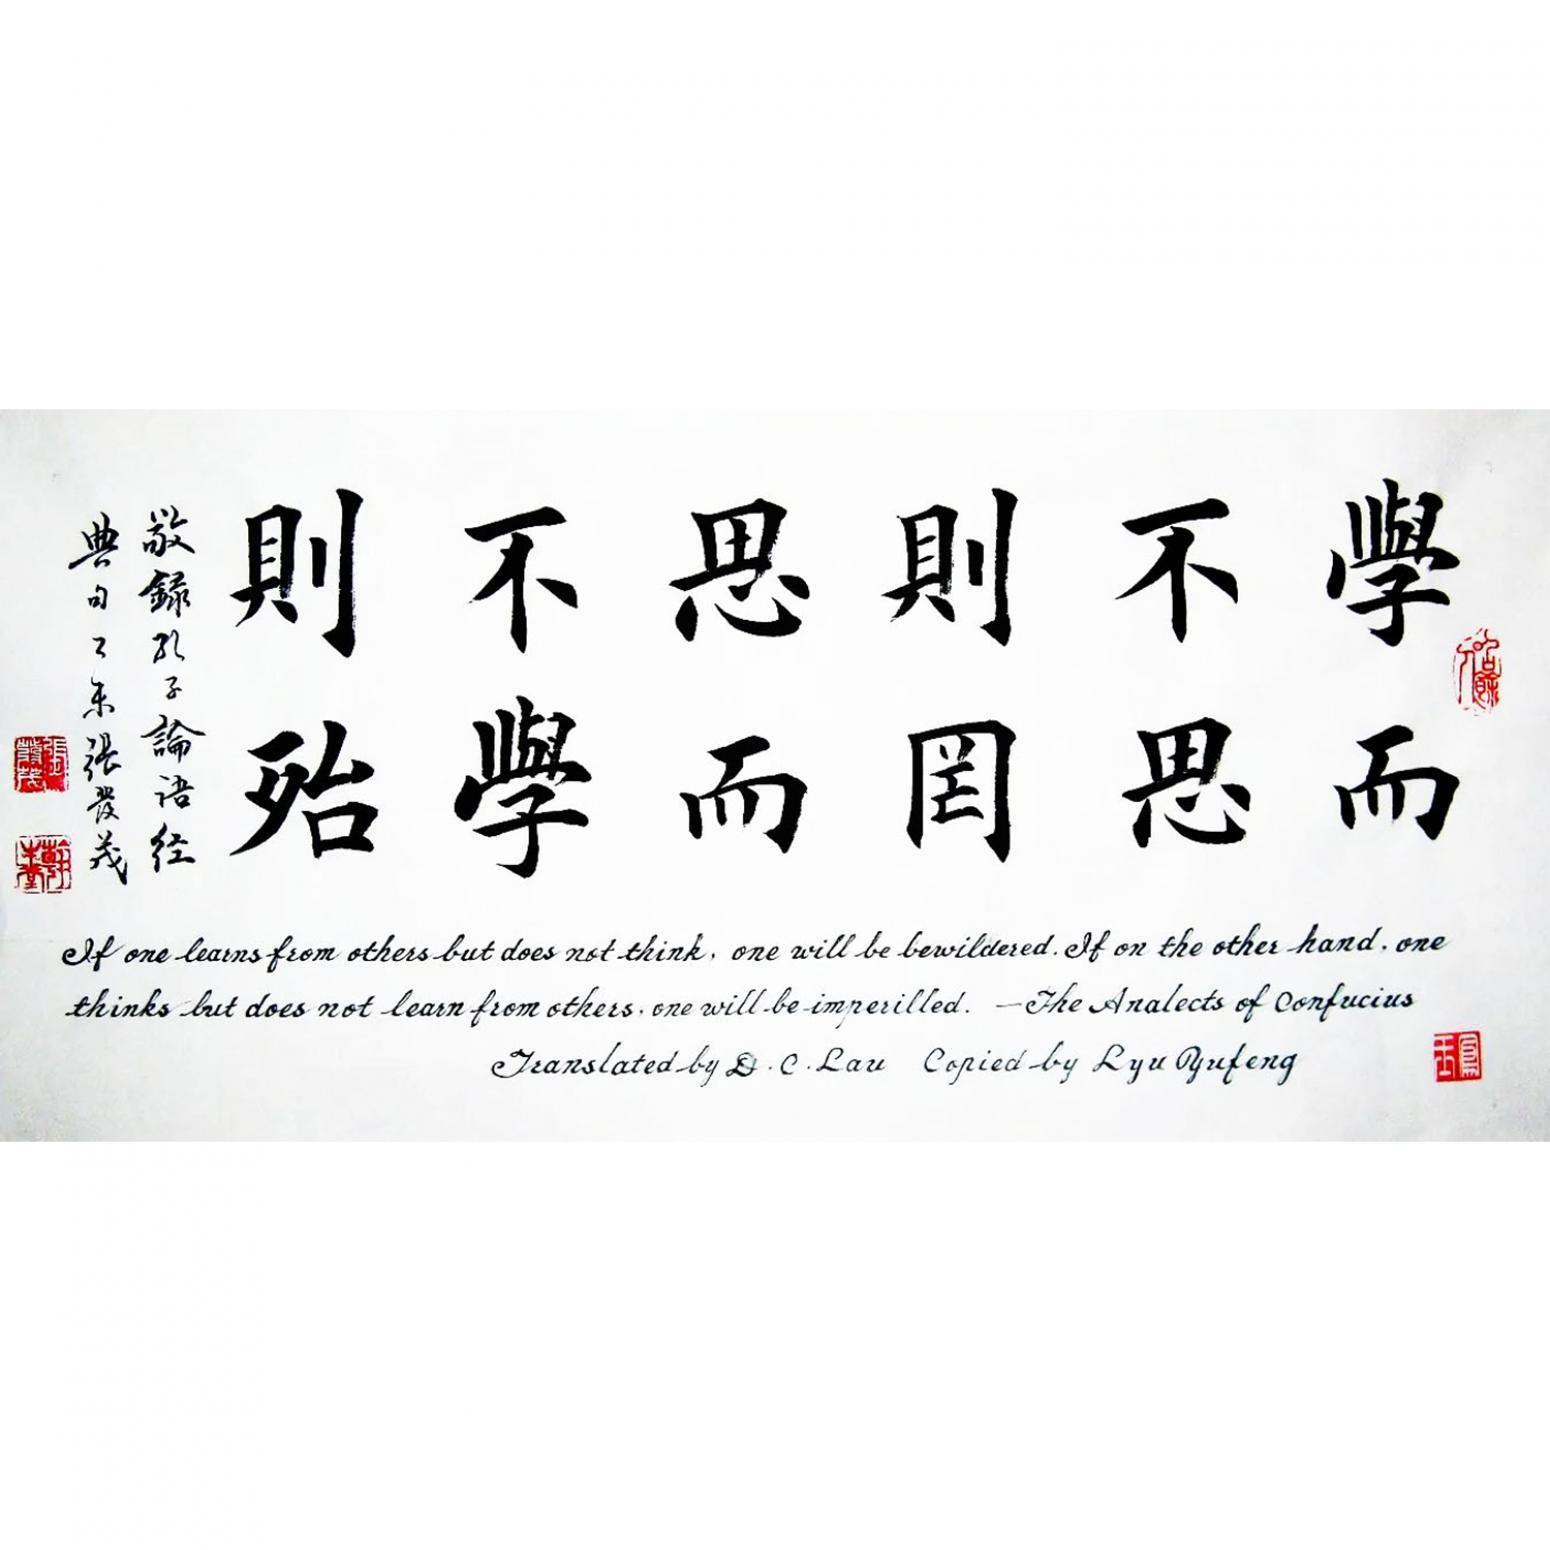 學而
不思
則罔
思而
不學
則殆
敬録孔子論語经
典句乙未張發茂
張發茂
If one learns from others but does not think, one will be bewildered. If on the other hand, one
thinks but does not learn from others, one will be imperilled. —The Analects of Confucius
Translated by D.C.Lau Copied by Lyu Yufeng